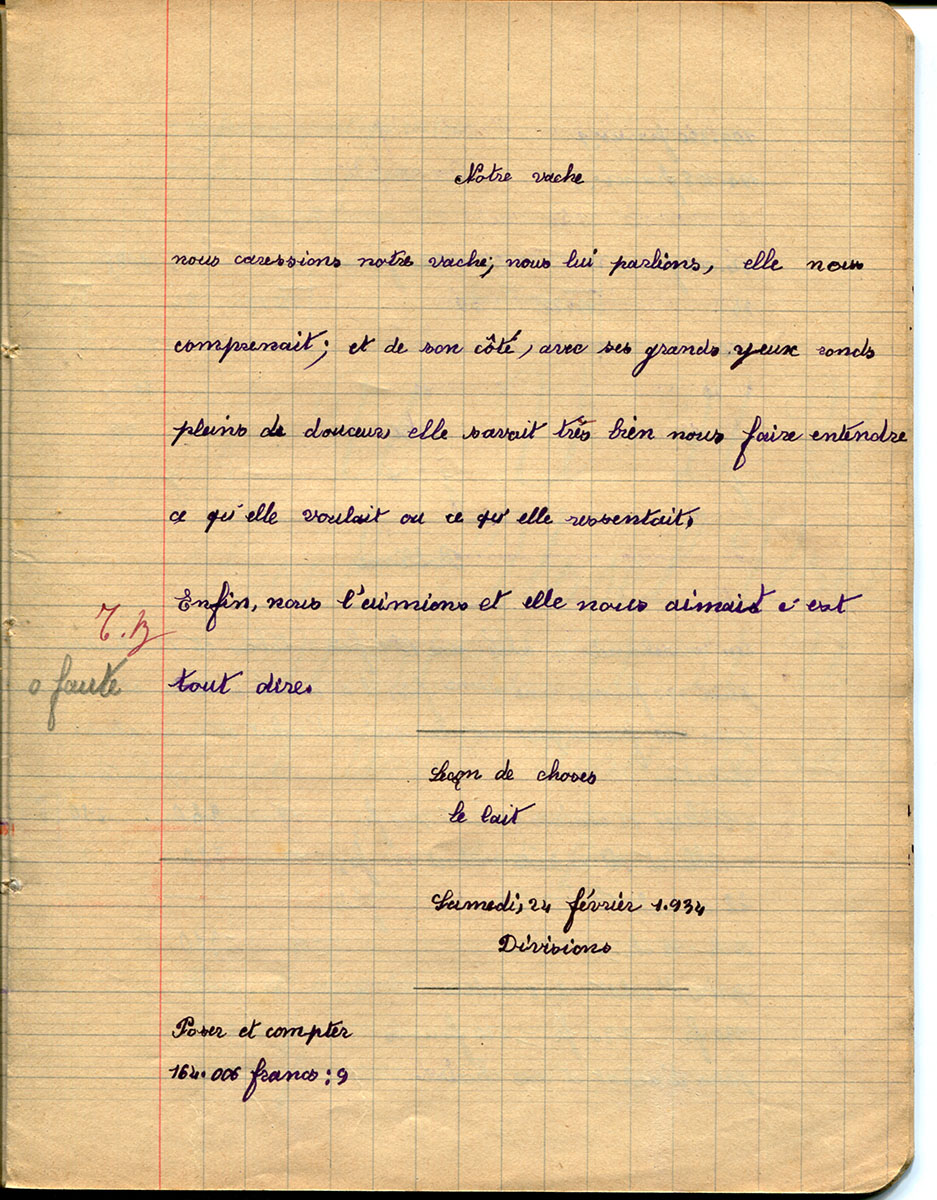 Notre vache
nous caressions notre vache; nous lui parlions, elle nous
comprenait; et de son côté, avec ses grands yeux ronds
pleins de douceur, elle savait très bien nous faire entendre
ce qu'elle voulait ou ce qu'elle ressentait.
Enfin, nous l'aimions et elle nous aimait c'est
T.B
0 faute
tout dire.
Leçon de choses
le lait
Samedi, 24 février 1.934
Divisions
Poser et compter
164.006 francs : 9